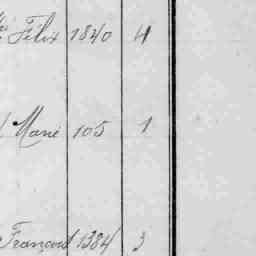 Félix 1840 4
Marie 105 1
François 1384 3